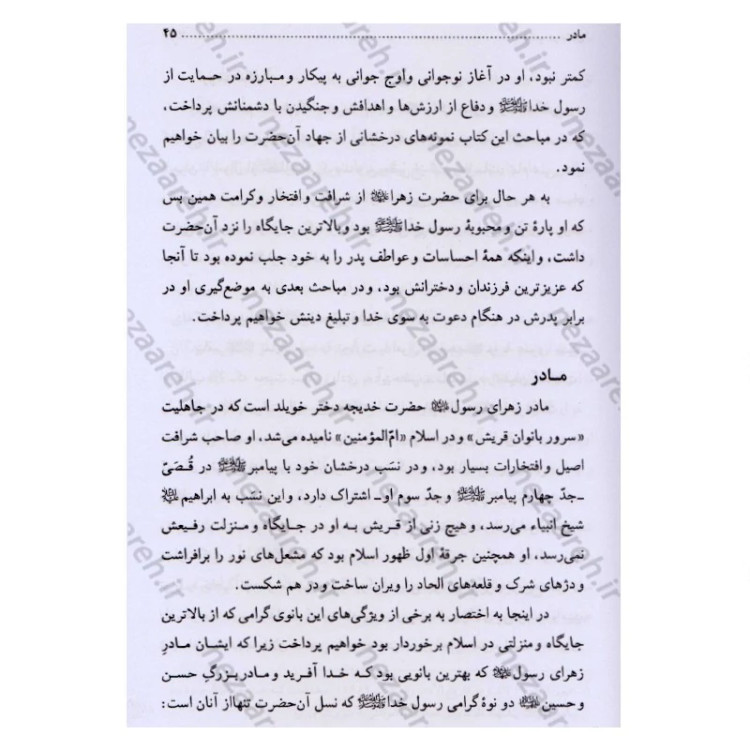 مادر ........................................................................ ۴۵
کمتر نبود، او در آغاز نوجوانی واوج جوانی به پیکار و مبارزه در حمایت از
رسول خداﷺ ودفاع از ارزش‌ها واهدافش وجنگیدن با دشمنانش پرداخت،
که در مباحث این کتاب نمونه‌های درخشانی از جهاد آن‌حضرت را بیان خواهیم
نمود.
به هر حال برای حضرت زهرا از شرافت وافتخار وکرامت همین بس
که او پارهٔ تن ومحبوبهٔ رسول خداﷺ بود وبالاترین جایگاه را نزد آن‌حضرت
داشت، واینکه همهٔ احساسات وعواطف پدر را به خود جلب نموده بود تا آنجا
که عزیزترین فرزندان ودخترانش بود، ودر مباحث بعدی به موضع‌گیری او در
برابر پدرش در هنگام دعوت به سوی خدا وتبلیغ دینش خواهیم پرداخت.
مـادر
مادر زهرای رسولﷺ حضرت خدیجه دختر خویلد است که در جاهلیت
«سرور بانوان قریش» ودر اسلام «امّ‌المؤمنین» نامیده می‌شد، او صاحب شرافت
اصیل وافتخارات بسیار بود، ودر نسَب درخشان خود با پیامبرﷺ در قُصَیّ
ـ‌جدّ چهارم پیامبرﷺ وجدّ سوم او‌ـ اشتراک دارد، واین نسَب به ابراهیم
شیخ انبیاء می‌رسد، وهیچ زنی از قریش به او در جایگاه و منزلت رفیعش
نمی‌رسد، او همچنین جرقهٔ اول ظهور اسلام بود که مشعل‌های نور را برافراشت
ودژهای شرک و قلعه‌های الحاد را ویران ساخت ودر هم شکست.
در اینجا به اختصار به برخی از ویژگی‌های این بانوی گرامی که از بالاترین
جایگاه ومنزلتی در اسلام برخوردار بود خواهیم پرداخت زیرا که ایشان مادرِ
زهرای رسولﷺ که بهترین بانویی بود که خدا آفرید و مادربزرگِ حسن
وحسین دو نوهٔ گرامی رسول خداﷺ که نسل آن‌حضرت تنهااز آنان است:
nezaareh.ir